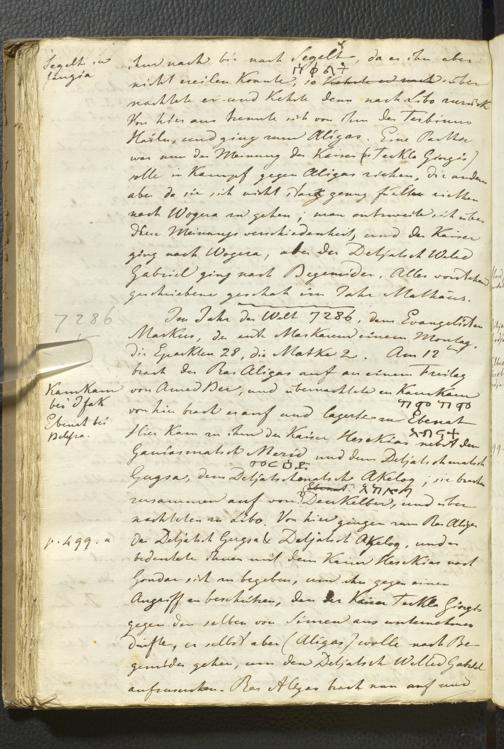 Segelt in
ihm nach bis nach Segelt, da er ihn aber
nicht ereilen konnte, so kehrte er nach über
nachtete er und kehrte dann nach Libo zurück
Von hier aus trennte sich von ihm der
Hailu, und ging zum Aligas. Eine Parthei
war nun der Meinung der Kaiser (Teckla Giorgis)
solle in Kampf gegen Aligas ziehen, die andere
aber da sie sich nicht stark genug fühlten riethen
nach Wogera zu gehen; man entzweite sich über
diese Meinungsverschiedenheit, und der Kaiser
ging nach Wogera, aber der Detjatsch Weled
Gabriel ging nach Begemider. Alles vorstehend
geschriebene geschah im Jahr Mathäus.
7286
Im Jahr der Welt 7286, dem Evangelisten
Markus, der erste Maskarem einem Montag.
die Epackten 28, die Matka 2. Am 12
brach der Ras Aligas auf an einem Freitag
Kamkam
bei Ifak
Ebenat bei
von Amed Ber, und übernachtete in Kamkam
von hier brach er auf und lagerte zu Ebenat
Hier kam zu ihm der Kaiser Heseckias nebst den
Merid und dem Detjatschmatsch
Gugsa, dem Detjatschmatsch Akelog; sie brachen
zusammen auf von und über
nachteten in Libo. Von hier gingen zum Ras Aligas
p. 499. a
der Detjatsch Gugsa & Detjatsch Akelog, und er
bedeutete ihnen mit dem Kaiser Heseckias nach
Gondar sich zu begeben, um ihn gegen einen
Angriff zu beschützen, den der Kaiser Teckla Giorgis
gegen den selben von Simen aus unternehmen
dürfte, er selbst aber (Aligas) wolle nach Be-
gemider gehen, um den Detjatsch Welled Gabriel
aufzusuchen. Ras Aligas brach nun auf und